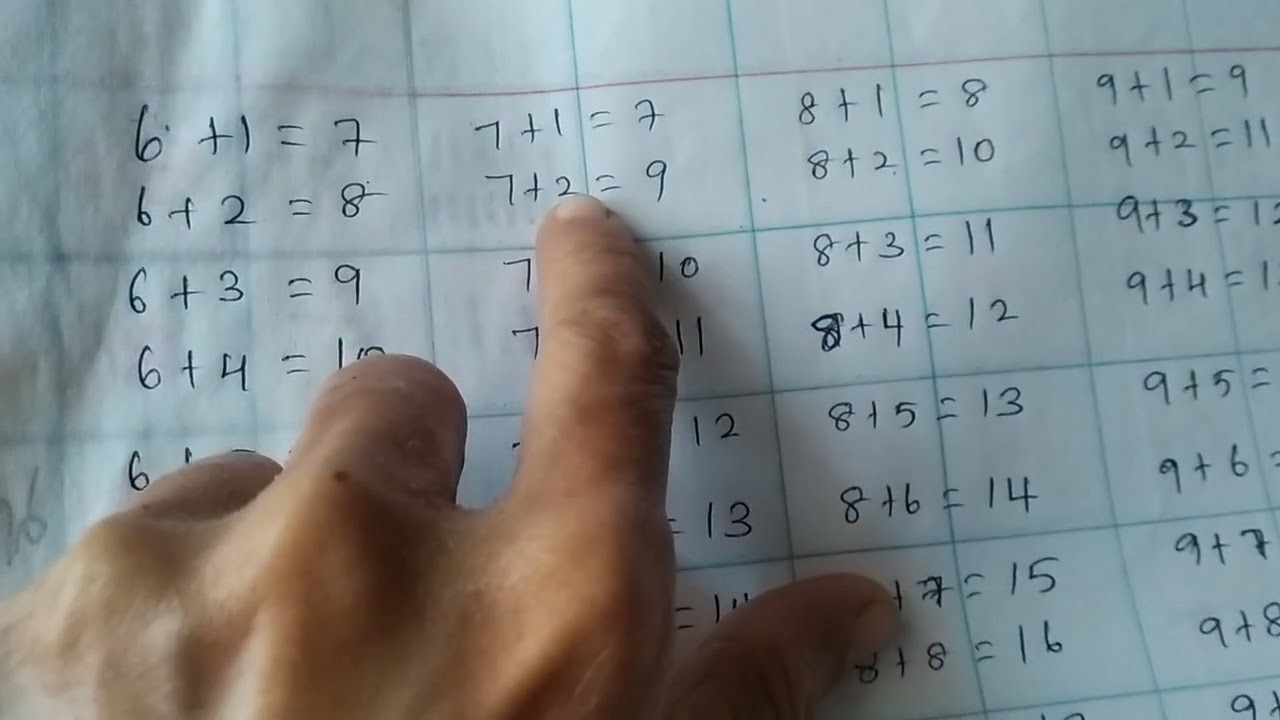 6 +1 = 7
6 + 2 = 8
6 + 3 = 9
6 + 4 = 10
6
7+1 = 7
7+2 = 9
7 10
7 11
12
= 13
= 14
8+1 = 8
8+2 = 10
8+3 = 11
8+4 = 12
8+5 = 13
8+6 = 14
+7 = 15
8+8 = 16
9+1 = 9
9+2 = 11
9+3 = 1
9+4 = 1
9+5 =
9+6 =
9+7
9+8
9+